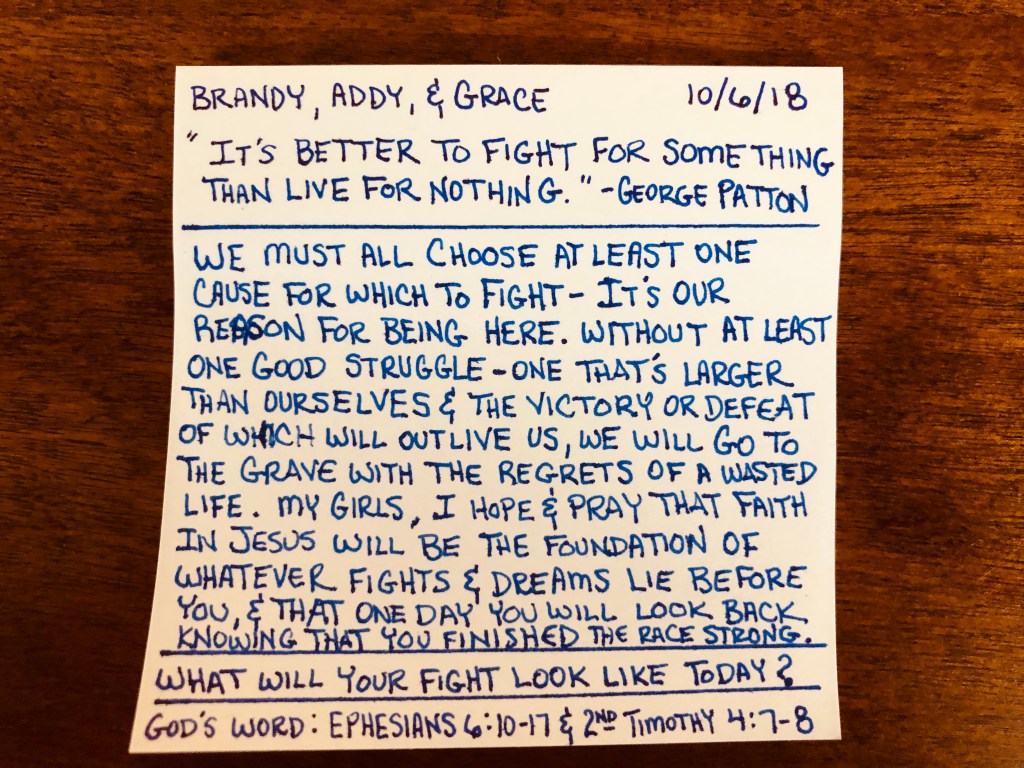 BRANDY, ADDY, & GRACE 10/6/18
"IT'S BETTER TO FIGHT FOR SOMETHING
THAN LIVE FOR NOTHING." -GEORGE PATTON
WE MUST ALL CHOOSE AT LEAST ONE
CAUSE FOR WHICH TO FIGHT - IT'S OUR
REASON FOR BEING HERE. WITHOUT AT LEAST
ONE GOOD STRUGGLE - ONE THAT'S LARGER
THAN OURSELVES & THE VICTORY OR DEFEAT
OF WHICH WILL OUTLIVE US, WE WILL GO TO
THE GRAVE WITH THE REGRETS OF A WASTED
LIFE. MY GIRLS, I HOPE & PRAY THAT FAITH
IN JESUS WILL BE THE FOUNDATION OF
WHATEVER FIGHTS & DREAMS LIE BEFORE
YOU, & THAT ONE DAY YOU WILL LOOK BACK
KNOWING THAT YOU FINISHED THE RACE STRONG.
WHAT WILL YOUR FIGHT LOOK LIKE TODAY?
GOD'S WORD: EPHESIANS 6:10-17 & 2ND TIMOTHY 4:7-8